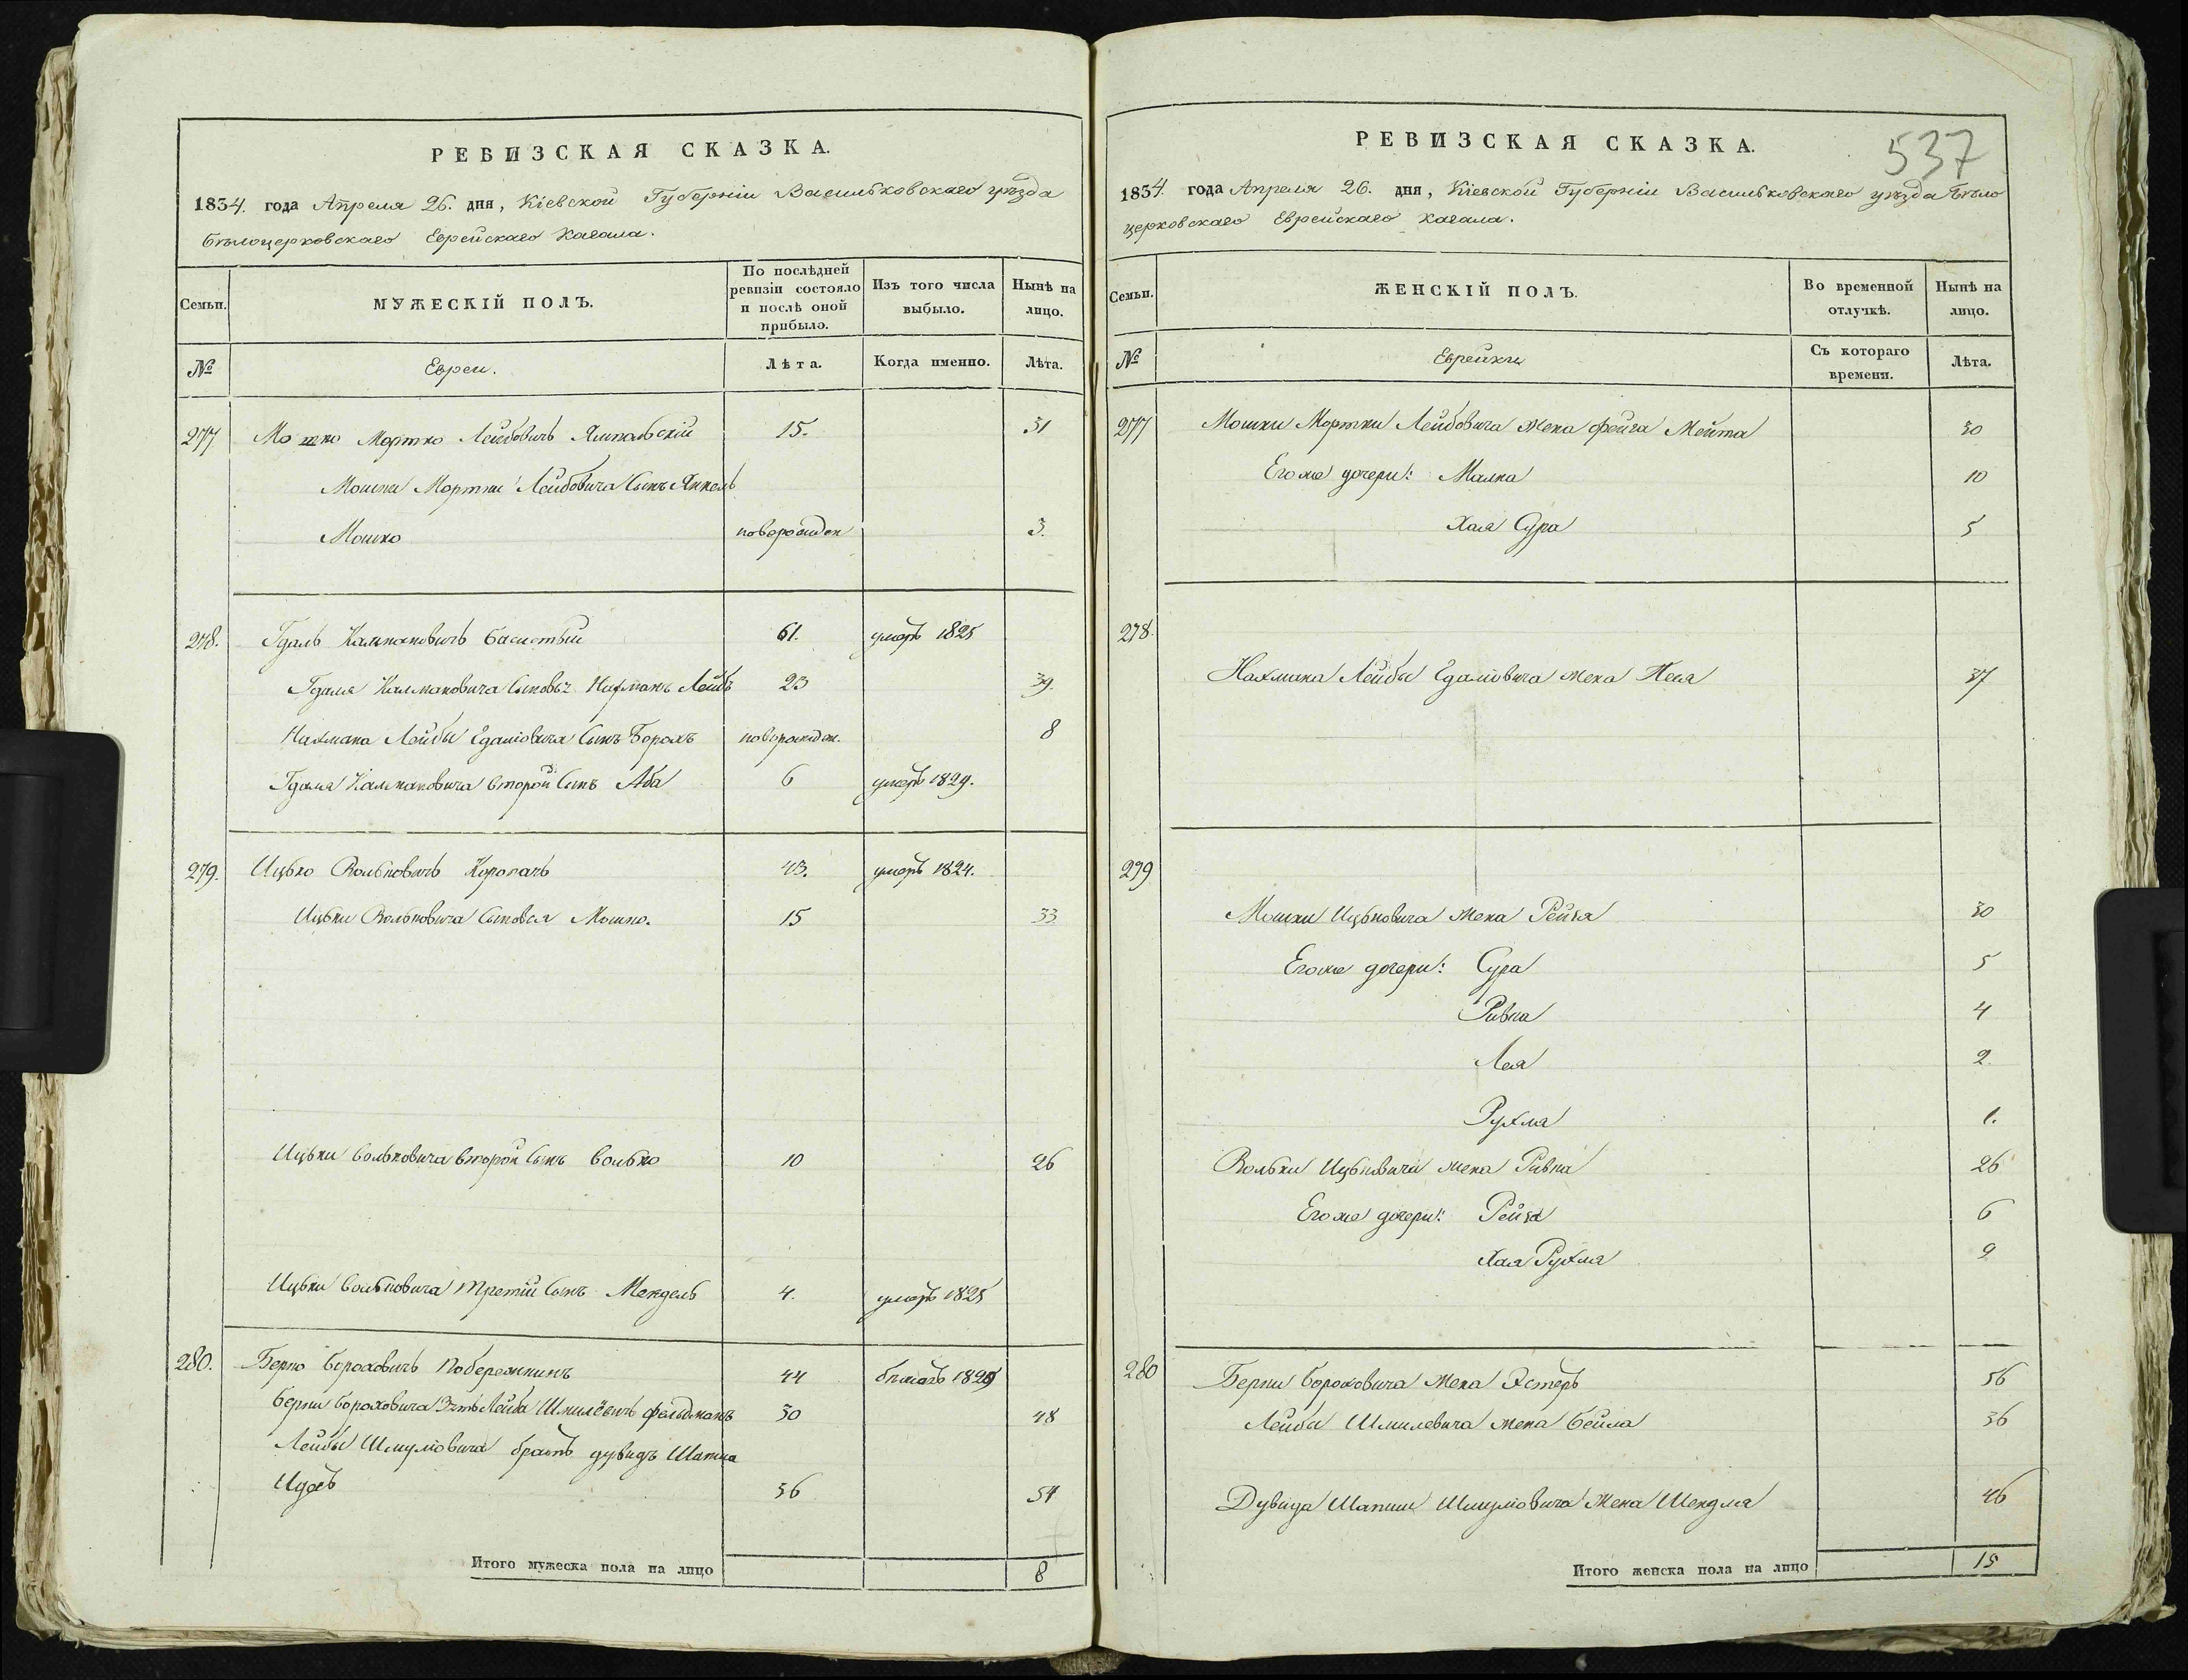 РЕВИЗСКАЯ СКАЗКА.
1834. года Апреля 26. дня, Кіевской Губерніи Васильковскаго уѣзда
Бѣлоцерковскаго Еврейскаго Кагала.
Семьи.
МУЖЕСКІЙ ПОЛЪ.
По послѣдней ревизіи состояло и послѣ оной прибыло.
Изъ того числа выбыло.
Нынѣ на лицо.
№
Евреи.
Лѣта.
Когда именно.
Лѣта.
277 Мошко Мортко Лейбовичъ Ямпольскій 15. 31
Мошки Мортки Лейбовича Сынъ Янкель
Мошко новорожден 3.
278. Гдаль Калмановичъ Басистый 61. умеръ 1825
Гдаля Калмановича Сыновья Нахманъ Лейбъ 23 39.
Нахмана Лейбы Гдаліовича Сынъ Борохъ новорожден. 8
Гдаля Калмановича второй Сынъ Аба 6 умеръ 1829.
279. Ицько Вольковичъ 43. умеръ 1824.
Ицьки Вольковича Сыновья Мошко. 15 33
Ицьки Вольковича второй Сынъ Волько 10 26
Ицьки Вольковича третій Сынъ Мендель 4. умеръ 1825
280. Берко Бороховичъ Побережкинъ 44
Берки Бороховича Зять Лейба Шмилевичъ Фельдманъ 30 48
Лейбы Шмуліовича братъ Дувидъ Шапша
36 54
Итого мужеска пола на лицо 8
РЕВИЗСКАЯ СКАЗКА.
537
1834. года Апреля 26. дня, Кіевской Губерніи Васильковскаго уѣзда Бѣло
церковскаго Еврейскаго Кагала.
Семьи.
ЖЕНСКІЙ ПОЛЪ.
Во временной отлучкѣ.
Нынѣ на лицо.
№
Еврейки
Съ котораго времени.
Лѣта.
277 Мошки Мортки Лейбовича жена Фейга Мейта 30
Его же дочери: Малка 10
Хая Сура 5
278.
Нахмана Лейбы Гдаліовича жена 37
279
Мошки Ицьковича жена Рейза 30
Его же дочери: Сура 5
Ривка 4
Лея 2.
Рухля 1.
Вольки Ицьковича жена Ривка 26
Его же дочери: Рейза 6
Хая Рухля 2
280 Берки Бороховича жена Эстеръ 56
Лейбы Шмилевича жена Бейла 36
Дувида Шапши Шмуліовича жена Шендля 46
Итого женска пола на лицо 15